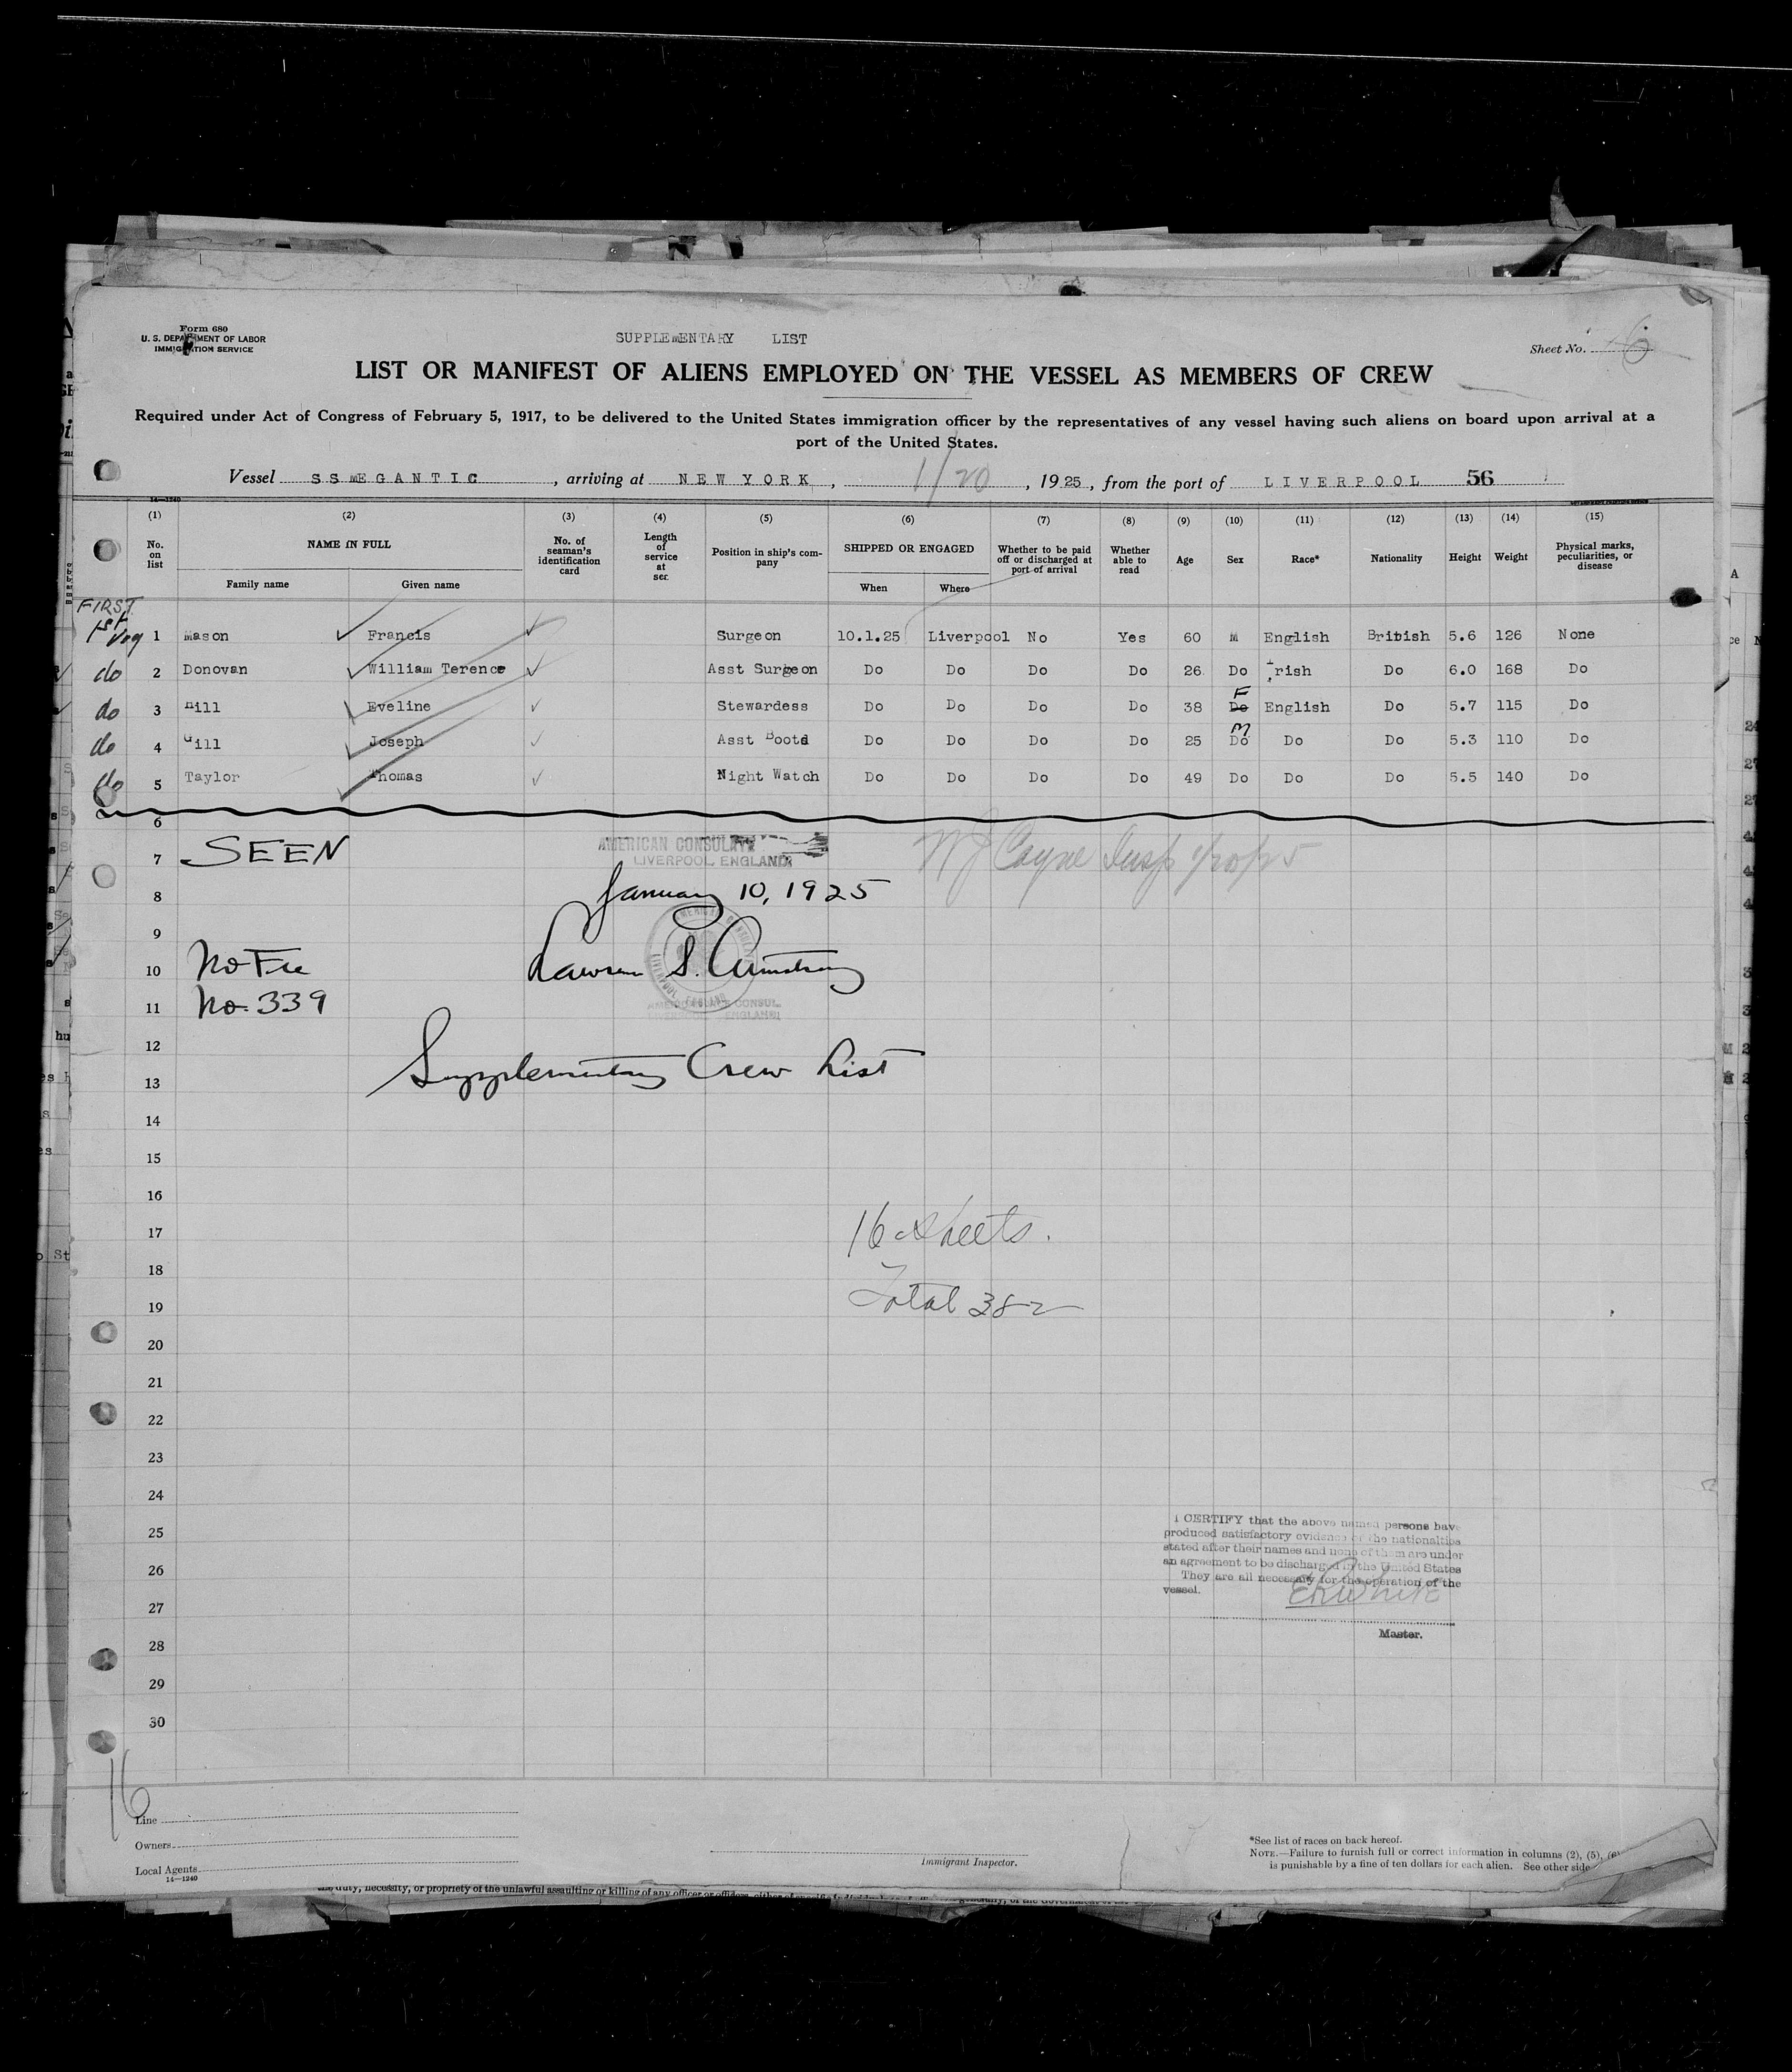 Form 680
U. S. DEPARTMENT OF LABOR
IMMIGRATION SERVICE
SUPPLEMENTARY LIST
Sheet No.
LIST OR MANIFEST OF ALIENS EMPLOYED ON THE VESSEL AS MEMBERS OF CREW
Required under Act of Congress of February 5, 1917, to be delivered to the United States immigration officer by the representatives of any vessel having such aliens on board upon arrival at a
port of the United States.
Vessel SS MEGANTIC, arriving at NEW YORK, 1/20, 1925, from the port of LIVERPOOL 56
14—1240
(1) (2) (3) (4) (5) (6) (7) (8) (9) (10) (11) (12) (13) (14) (15)
No. on list NAME IN FULL Family name Given name No. of seaman's identification card Length of service at sea Position in ship's company SHIPPED OR ENGAGED When Where Whether to be paid off or discharged at port of arrival Whether able to read Age Sex Race* Nationality Height Weight Physical marks, peculiarities, or disease
FIRST
1st Voy 1 Mason Francis Surgeon 10.1.25 Liverpool No Yes 60 M English British 5.6 126 None
do 2 Donovan William Terence Asst Surgeon Do Do Do Do 26 Do Irish Do 6.0 168 Do
do 3 Hill Eveline Stewardess Do Do Do Do 38 Do F English Do 5.7 115 Do
do 4 Gill Joseph Asst Boots Do Do Do Do 25 Do M Do Do 5.3 110 Do
do 5 Taylor Thomas Night Watch Do Do Do Do 49 Do Do Do 5.5 140 Do
6
7 SEEN AMERICAN CONSULATE
LIVERPOOL, ENGLAND
N J Coyne Insp 1/20/25
8 January 10, 1925
9
10 No Fee Lawrence S. Armstrong
11 No. 339
AMERICAN CONSUL
LIVERPOOL ENGLAND
12
13 Supplementary Crew List
14
15
16
17 16 sheets.
18
19 Total 382
20
21
22
23
24
25
26
27
28
29
30
I CERTIFY that the above named persons have
produced satisfactory evidence of the nationalties
stated after their names and none of them are under
an agreement to be discharged in the United States
They are all necessary for the operation of the
vessel.
E R White
Master.
16
Line
Owners
Local Agents
14—1240
Immigrant Inspector.
*See list of races on back hereof.
NOTE.—Failure to furnish full or correct information in columns (2), (5), (6)
is punishable by a fine of ten dollars for each alien. See other side